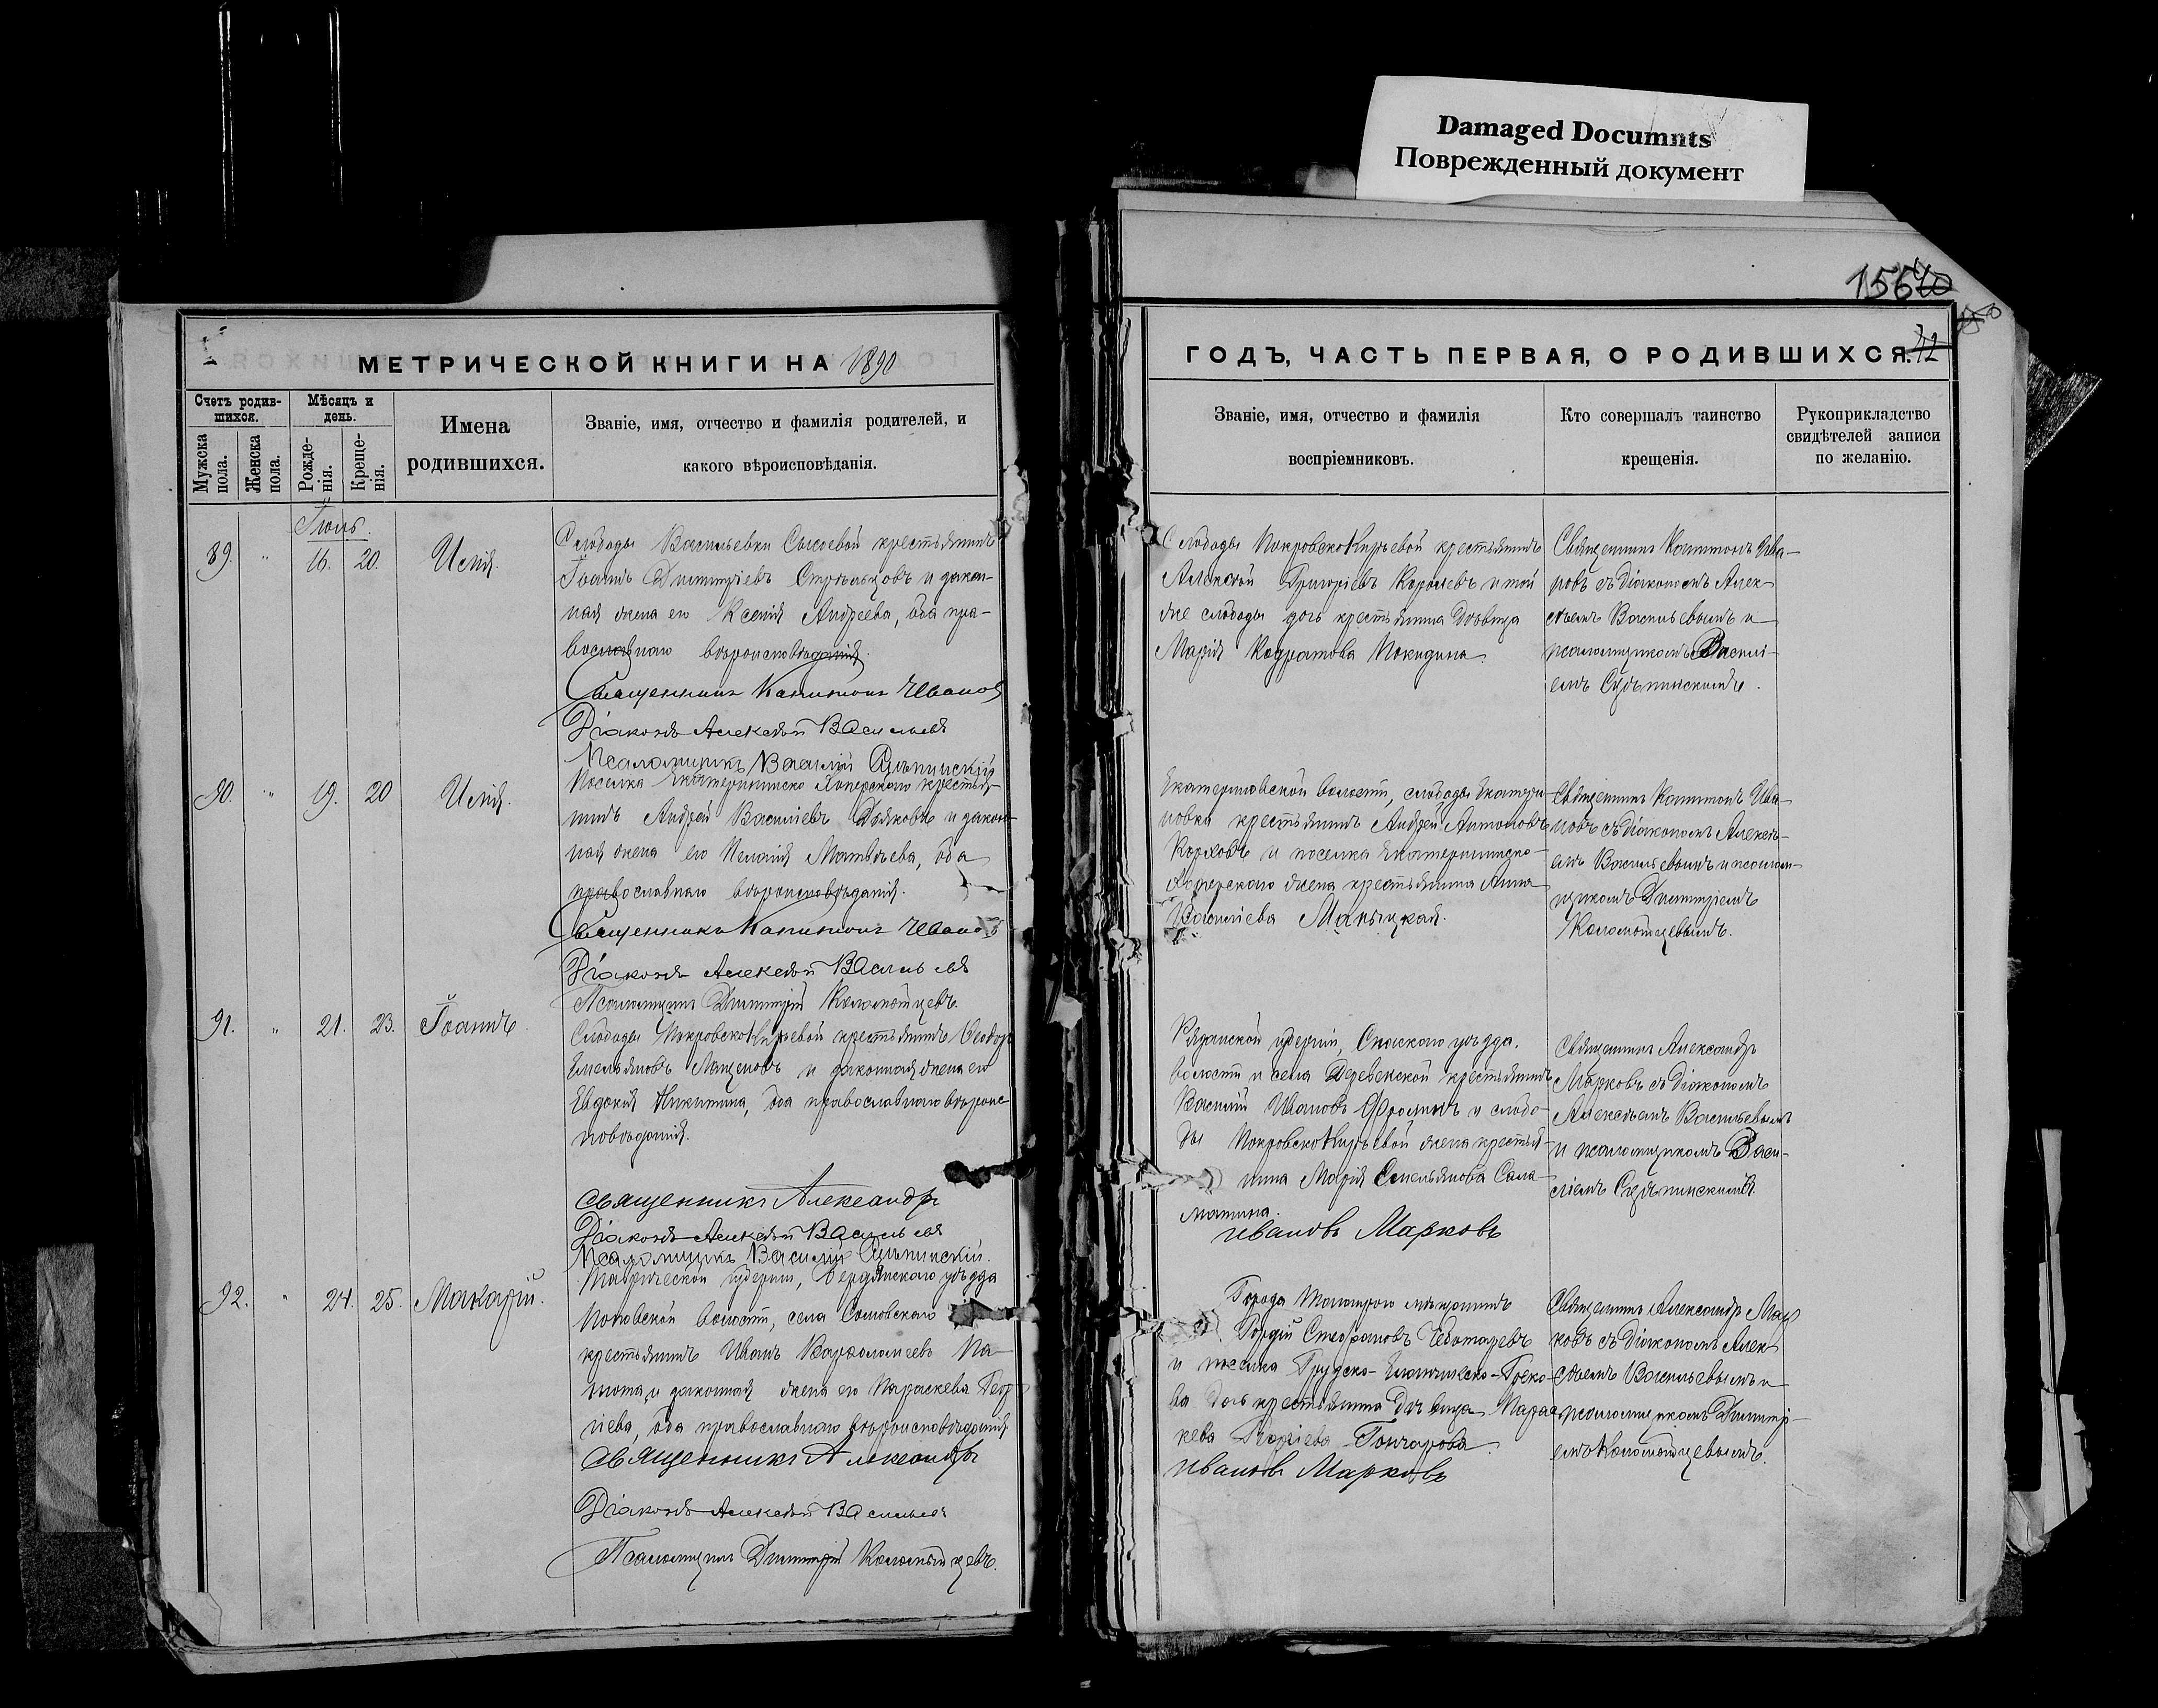 Damaged Documnts
Поврежденный документ
156
МЕТРИЧЕСКОЙ КНИГИ НА 1890
Счетъ родив-
шихся.
Мѣсяцъ и
день.
Мужска
пола.
Женска
пола.
Рожде-
нія.
Креще-
нія.
Имена
родившихся.
Званіе, имя, отчество и фамилія родителей, и
какого вѣроисповѣданія.
Іюль.
89. " 16. 20. Илія.
Слободы Васильевки Сысоевой крестьянинъ
Іоаннъ Димитріевъ Стрѣльцовъ и закон-
ная жена его Ксенія Андреева, оба пра-
вославнаго вѣроисповѣданія.
Священникъ Капитонъ Ивановъ
Діаконъ Алексѣй Васильевъ
Псаломщикъ Василій
90. " 19. 20 Илія.
Поселка Екатерининско Хоперскаго крестья-
нинъ Андрей Василіевъ Дьяковъ и закон-
ная жена его Пелагія Матвѣева, оба
православнаго вѣроисповѣданія.
Священникъ Капитонъ Ивановъ
Діаконъ Алексѣй Васильевъ
Псаломщикъ Димитрій Коломойцевъ.
91. " 21. 23. Іоаннъ.
Слободы ПокровскоКирьевой крестьянинъ Ѳеодоръ
Емельяновъ и законная жена его
Евдокія Никитина, оба православнаго вѣроис-
повѣданія.
Священникъ Александръ
Діаконъ Алексѣй Васильевъ
Псаломщикъ Василій
92. " 24. 25. Макарій.
Таврической губерніи, Бердянскаго уѣзда
Поповской волости, села
крестьянинъ Иванъ Варѳоломеевъ Па-
и законная жена его Параскева Геор-
гіева, оба православнаго вѣроисповѣданія
Священникъ Александръ
Діаконъ Алексѣй Васильевъ
Псаломщикъ Димитрій Коломойцевъ.
ГОДЪ, ЧАСТЬ ПЕРВАЯ, О РОДИВШИХСЯ.
Званіе, имя, отчество и фамилія
воспріемниковъ.
Кто совершалъ таинство
крещенія.
Рукоприкладство
свидѣтелей записи
по желанію.
Слободы ПокровскоКирьевой крестьянинъ
Алексѣй Григоріевъ Королевъ и той
же слободы дочь крестьянина дѣвица
Марія Кодратова
Священникъ Капитонъ Ива-
новъ съ діакономъ Алек-
сѣемъ Васильевымъ и
псаломщикомъ Васили-
емъ
Екатериновской волости, слободы Екатери-
новки крестьянинъ Андрей Антоновъ
и поселка Екатерининско-
Хоперскаго жена крестьянина Анна
Василіева Маныцкая.
Священникъ Капитонъ Ива-
новъ съ діакономъ Алексѣ-
емъ Васильевымъ и псалом-
щикомъ Димитріемъ
Коломойцевымъ.
Рязанской губерніи, Спасскаго уѣзда,
волости и села крестьянинъ
Василій Ивановъ Фроликъ и слобо-
ды ПокровскоКирьевой жена крестья-
нина Марія Емельянова Сала-
матина.
Ивановъ Марковъ
Священникъ Александръ
Марковъ съ діакономъ
Алексѣемъ Васильевымъ
и псаломщикомъ Васи-
ліемъ
Города Таганрога мѣщанинъ
Гордій Стефановъ Чеботаревъ
и поселка Грузско-Еланчинско-Греко-
ва дочь крестьянина дѣвица Парас-
кева Георгіева Гончарова.
Ивановъ Марковъ
Священникъ Александръ Мар-
ковъ съ діакономъ Алек-
сѣемъ Васильевымъ и
псаломщикомъ Димитрі-
емъ Коломойцевымъ.